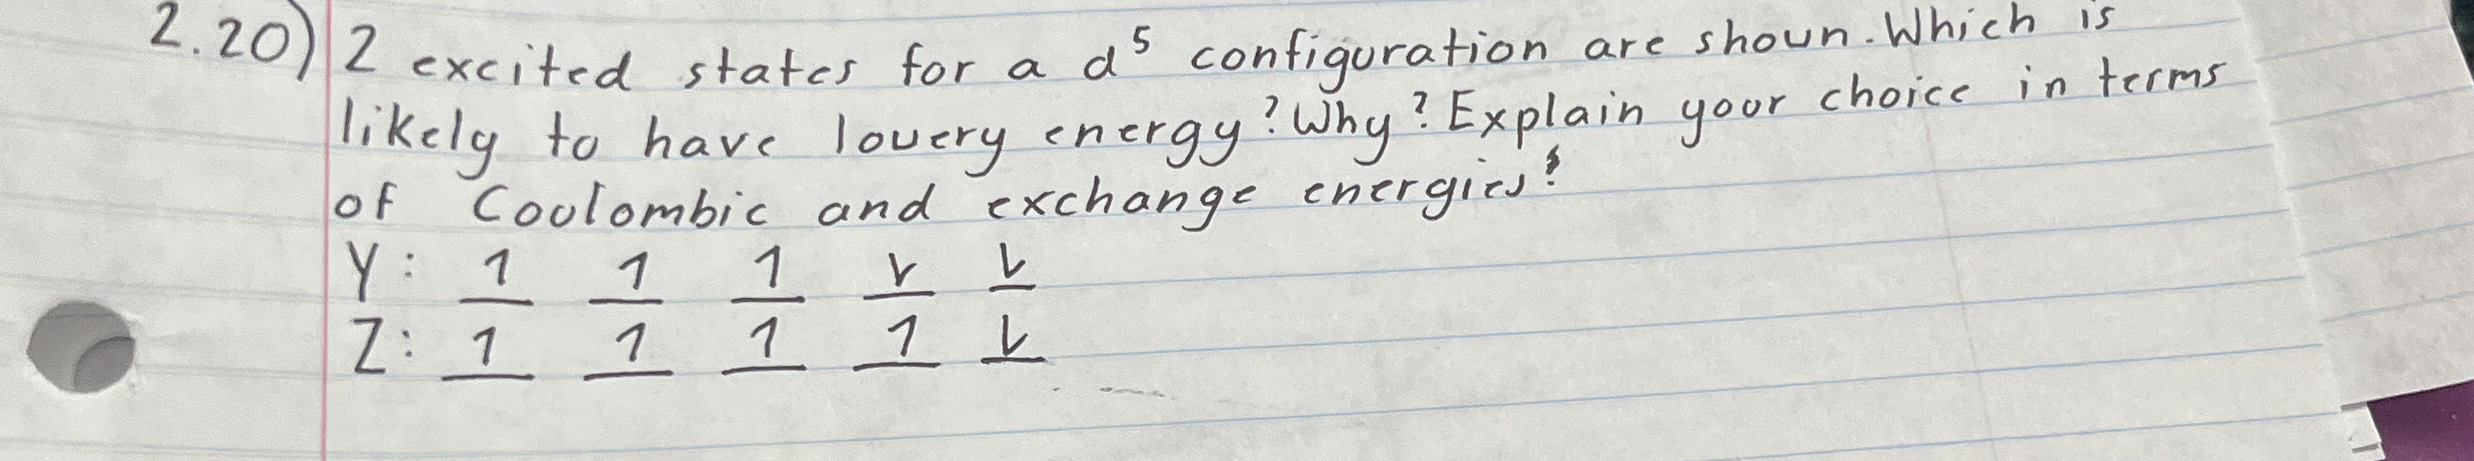 2.20) 2 excited states for a d⁵ configuration are shown. Which is
likely to have lowery energy? Why? Explain your choice in terms
of Coulombic and exchange energies!
Y: 1 1 1 v v
Z: 1 1 1 1 v